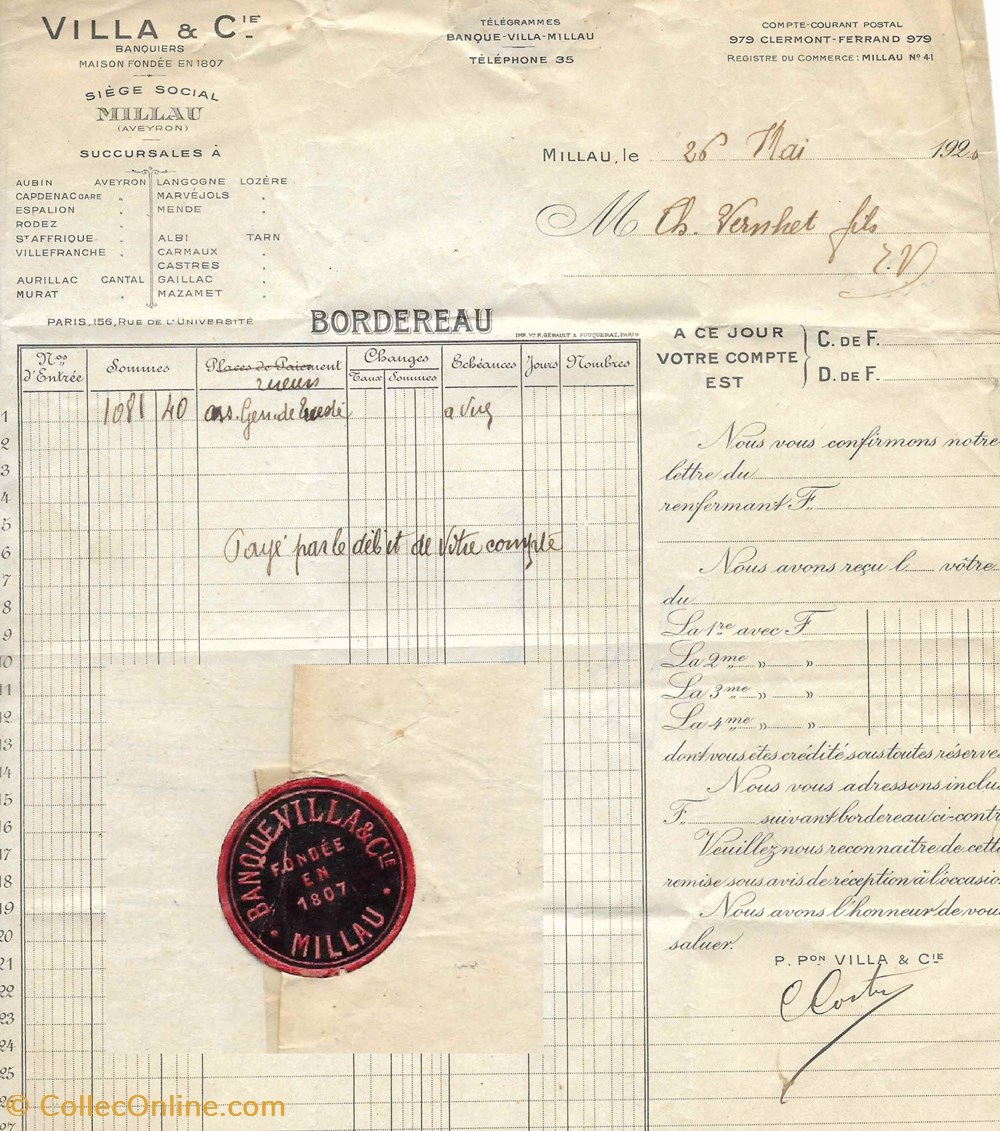 VILLA & CIE
BANQUIERS
MAISON FONDÉE EN 1807
SIÈGE SOCIAL
MILLAU
(AVEYRON)
SUCCURSALES À
AUBIN AVEYRON
CAPDENAC GARE "
ESPALION "
RODEZ
ST AFFRIQUE "
VILLEFRANCHE "
AURILLAC CANTAL
MURAT "
LANGOGNE LOZÈRE
MARVÉJOLS "
MENDE "
ALBI TARN
CARMAUX "
CASTRES "
GAILLAC "
MAZAMET "
PARIS, 156, RUE DE L'UNIVERSITÉ
TÉLÉGRAMMES
BANQUE-VILLA-MILLAU
TÉLÉPHONE 35
COMPTE-COURANT POSTAL
979 CLERMONT-FERRAND 979
REGISTRE DU COMMERCE : MILLAU N° 41
MILLAU, le 26 Mai 192
M Ch. Vernhet fils
E.V
BORDEREAU
IMP. Vve F. GÉRAULT & FOUQUERAY, PARIS
Nos d'Entrée
Sommes
Places de Paiement
Changes
Taux
Sommes
Echéances
Jours
Nombres
1 1081 40 a vue
2
3
4
5
6 Payé par le débit de Votre compte
7
8
9
10
11
12
13
14
15
16
17
18
19
20
21
22
23
24
25
26
27
A CE JOUR
VOTRE COMPTE
EST
C. DE F.
D. DE F.
Nous vous confirmons notre
lettre du
renfermant F.
Nous avons reçu l vôtre
du
La 1re avec F
La 2me " "
La 3me " "
La 4me " "
dont vous êtes crédité sous toutes réserves
Nous vous adressons inclus
F. suivant bordereau ci-contr
Veuillez nous reconnaitre de cette
remise sous avis de réception à l'occasion
Nous avons l'honneur de vous
saluer.
P. PON VILLA & CIE
BANQUE VILLA & CIE
FONDÉE
EN
1807
MILLAU
© CollecOnline.com